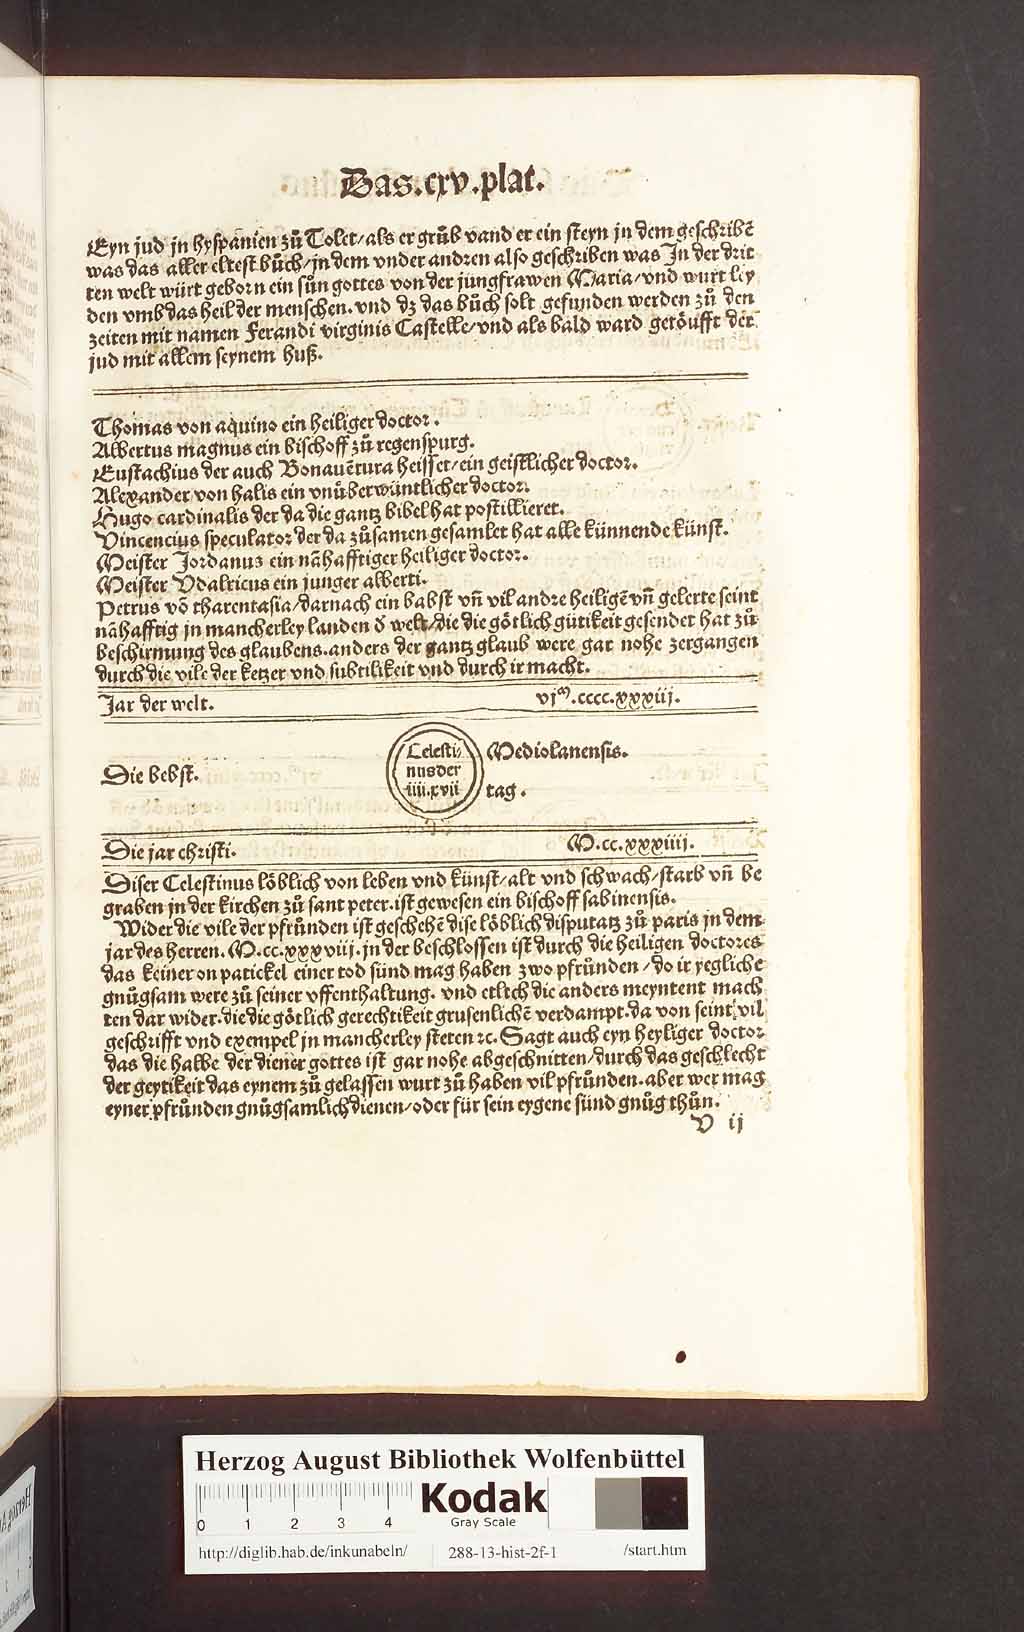 Das.cxv.plat.
Eyn jud jn hyspanien zů Tolet/als er grůb vand er ein steyn jn dem geschribē
was das aller eltest bůch/jn dem vnder andren also geschriben was In der drit
ten welt würt geborn ein sůn gottes von der jungfrawen Maria/vnd wurt ley
den vmb das heil der menschen. vnd dz das bůch solt gefunden werden zů den
zeiten mit namen Ferandi virginis Castelle/vnd als bald ward getöufft der
jud mit allem seynem huß.
Thomas von aquino ein heiliger doctor.
Albertus magnus ein bischoff zů regenspurg.
Eustachius der auch Bonauētura heisset/ein geistlicher doctor.
Alexander von halis ein vnüberwüntlicher doctor.
Hugo cardinalis der da die gantz bibel hat postillieret.
Vincencius speculator der da zůsamen gesamlet hat alle künnende künst.
Meister Jordanus ein nāhafftiger heiliger doctor.
Meister Vdalricus ein junger alberti.
Petrus vō tharentasia/darnach ein babst vn̄ vil andre heiligē vn̄ gelerte seint
nāhafftig jn mancherley landen d̄ welt/die die götlich gütikeit gesendet hat zů
beschirmung des glaubens.anders der gantz glaub were gar nohe zergangen
durch die vile der ketzer vnd subtilikeit vnd durch ir macht.
Jar der welt. vjᵐ.cccc.xxxiij.
Celesti/ Mediolanensis.
Die bebst. nus der
iiii.xvii tag.
Die jar christi. M.cc.xxxiiij.
Diser Celestinus löblich von leben vnd künst/alt vnd schwach/starb vn̄ be
graben jn der kirchen zů sant peter.ist gewesen ein bischoff sabinensis.
Wider die vile der pfründen ist geschehē dise löblich disputatz zů paris jn dem
jar des herren.M.cc.xxxviij.jn der beschlossen ist durch die heiligen doctores
das keiner on patickel einer tod sünd mag haben zwo pfründen/do ir yegliche
gnůgsam were zů seiner vffenthaltung. vnd etlich die anders meyntent mach
ten dar wider.die die götlich gerechtikeit grusenlichē verdampt.da von seint vil
geschrifft vnd exempel jn mancherley steten ⁊c. Sagt auch eyn heyliger doctor
das die halbe der diener gottes ist gar nohe abgeschnitten/durch das geschlecht
der geytikeit das eynem zů gelassen wurt zů haben vil pfründen.aber wer mag
eyner pfründen gnůgsamlich dienen/oder für sein eygene sünd gnůg thůn.
V ij
Herzog August Bibliothek Wolfenbüttel
Kodak
Gray Scale
0 1 2 3 4
http://diglib.hab.de/inkunabeln/ 288-13-hist-2f-1 /start.htm